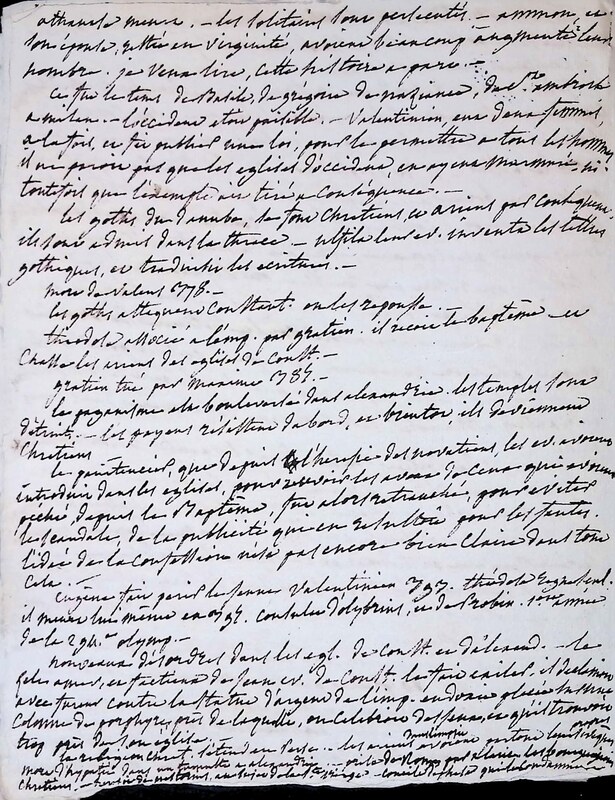 athanase meurt. — les solitaires sont persecutés. — ammon, et
son epouse, restée en virginité, avoient beaucoup augmenté leur
nombre. je veux lire, cette histoire a part. —
ce fut le tems de Basile, de gregoire de nazianze, de St. ambroise
a milan. — l'occident etoit paisible. — Valentinien, eut deux femmes,
a la fois, et fit publier une loi, pour le permettre a tous les hommes
il ne paroit pas que les eglises d'occident, en ayent murmuré, ni
toutefois que l'exemple ait tiré a conséquence. —
les goths du danube, se font Chrétiens, et ariens par conséquent
ils sont admis dans la thrace — ulfila leur ev. inventa les lettres
gothiques, et traduisit les ecritures. —
mort de Valens 378. —
les goths attaquent Constant. on les repousse. —
théodose associé a l'emp. par gratien. il reçoit le baptême — et
Chasse les ariens des eglises de Const. —
gratien tué par maxime 387. —
le paganisme est bouleversé dans alexandrie. les temples sont
détruits. — les payens résistent d'abord, et bientot, ils deviennent
Chrétiens
le pénitencier que depuis l'heresie des novatiens, les ev. avoient
introduit dans les eglises, pour recevoir les aveux de ceux qui avoient
péché, depuis le Baptême, fut alors retranché, pour eviter
le scandale, de la publicité que en resultoit pour les fautes.
l'idée de la Confession n'est pas encore bien Claire dans tout
cela. —
Eugène fait perir le jeune Valentinien 393. théodose
il meurt lui même en 395. consulat d'olybrius, et de Probin. 1ere année
de la 294.e olymp. —
nouveaux désordres dans les egl. de Const. et d'alexand. — le
zele amer, et factieux de jean ev. de Const. le fait exiler. il declamoit
avec fureur contre la statue d'argent de l'imp. eudoxie placée sur une
Colonne de porphyre, près de laquelle, on celebroit des jeux, et qu'il trouvoit
trop près de son eglise. —
la religion chret. s'étend en Perse. — les ariens avoient partout leurs évêques
mort d'hypatie dans un tumulte a alexandrie. —
Chrétiens. — de nestorius, au sujet de la Ste Vierge — concile d'ephese qui le condamne